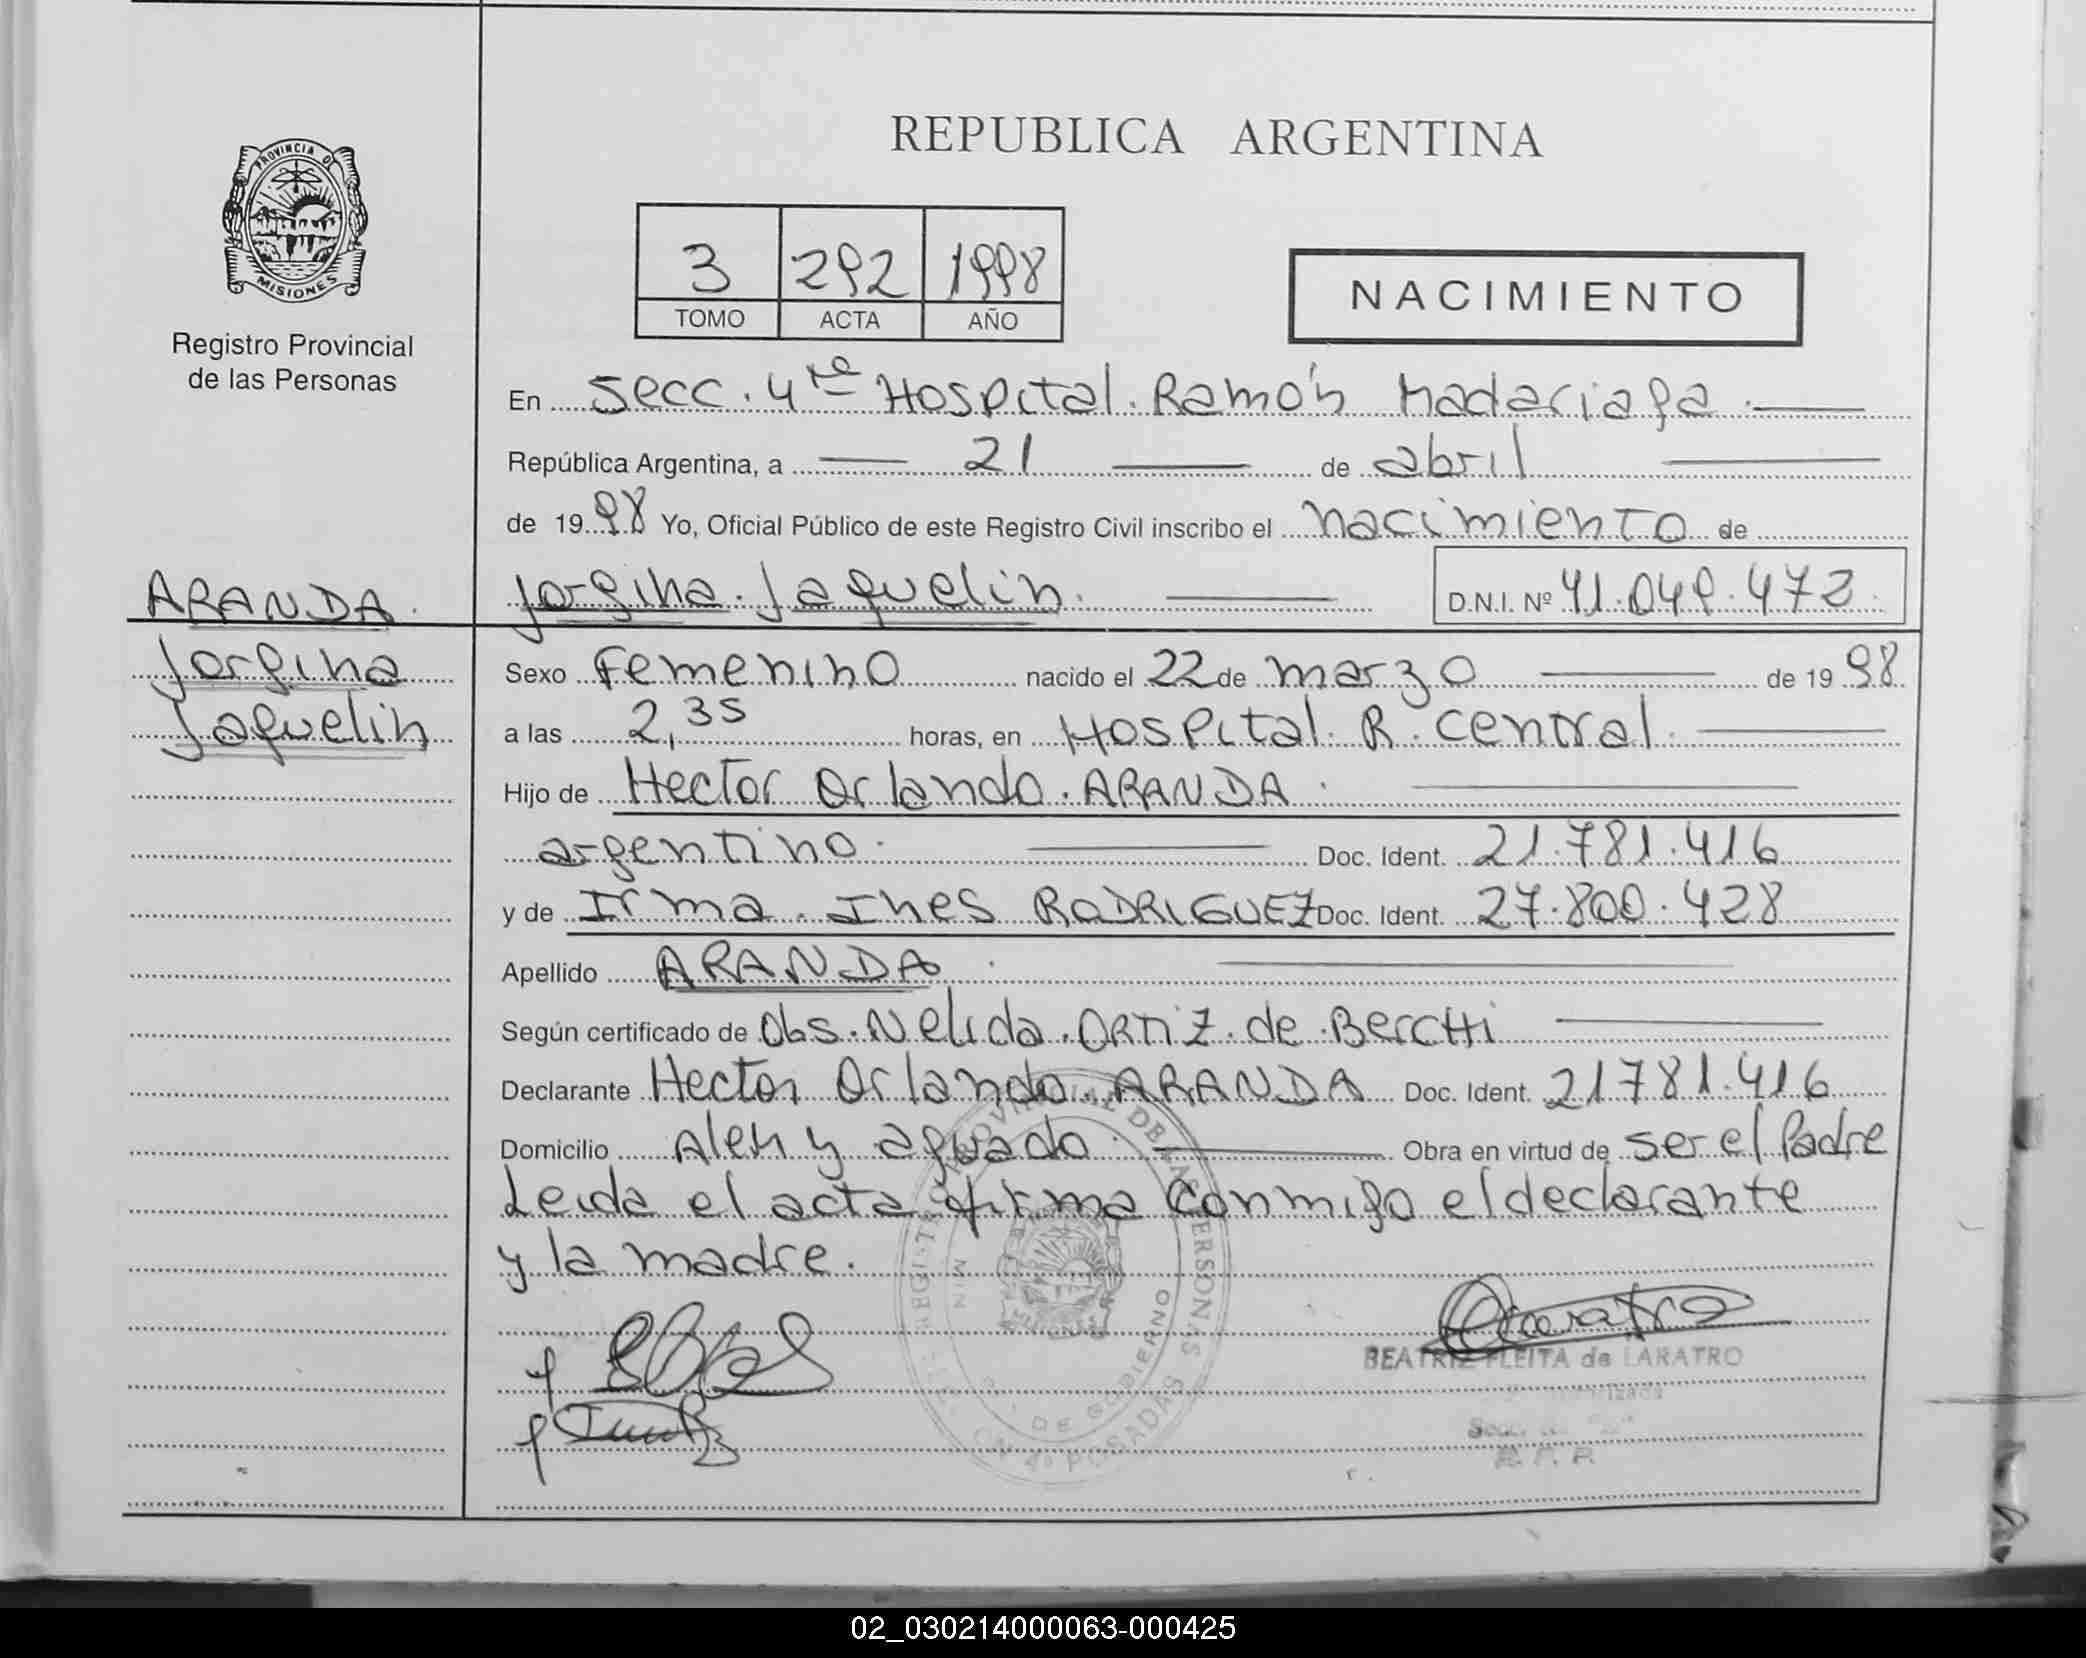 REPUBLICA ARGENTINA
PROVINCIA DE
MISIONES
Registro Provincial
de las Personas
3 292 1998
TOMO ACTA AÑO
NACIMIENTO
En Secc. 4ta Hospital. Ramón Madariaga.
República Argentina, a 21 de abril
de 1998 Yo, Oficial Público de este Registro Civil inscribo el nacimiento de
ARANDA. Jorgina. Jaquelin. D.N.I. Nº 41.049.473.
Jorgina
Jaquelin
Sexo Femenino nacido el 22 de marzo de 1998
a las 2,35 horas, en Hospital. R. Central.
Hijo de Hector Orlando. ARANDA.
argentino. Doc. Ident. 21.781.416
y de Irma. Ines RODRIGUEZ Doc. Ident. 27.800.428
Apellido ARANDA.
Según certificado de Obs. Nelida. ORTIZ. de.
Declarante Hector Orlando. ARANDA Doc. Ident. 21781.416
Domicilio Alem y aguado. Obra en virtud de ser el Padre
Leida el acta firma conmigo el declarante
y la madre.
REGISTRO PROVINCIAL DE LAS PERSONAS
MIN. DE GOBIERNO
MISIONES
4º POSADAS
BEATRIZ FLEITA de LARATRO
Secc.
R. P. P.
02_030214000063-000425